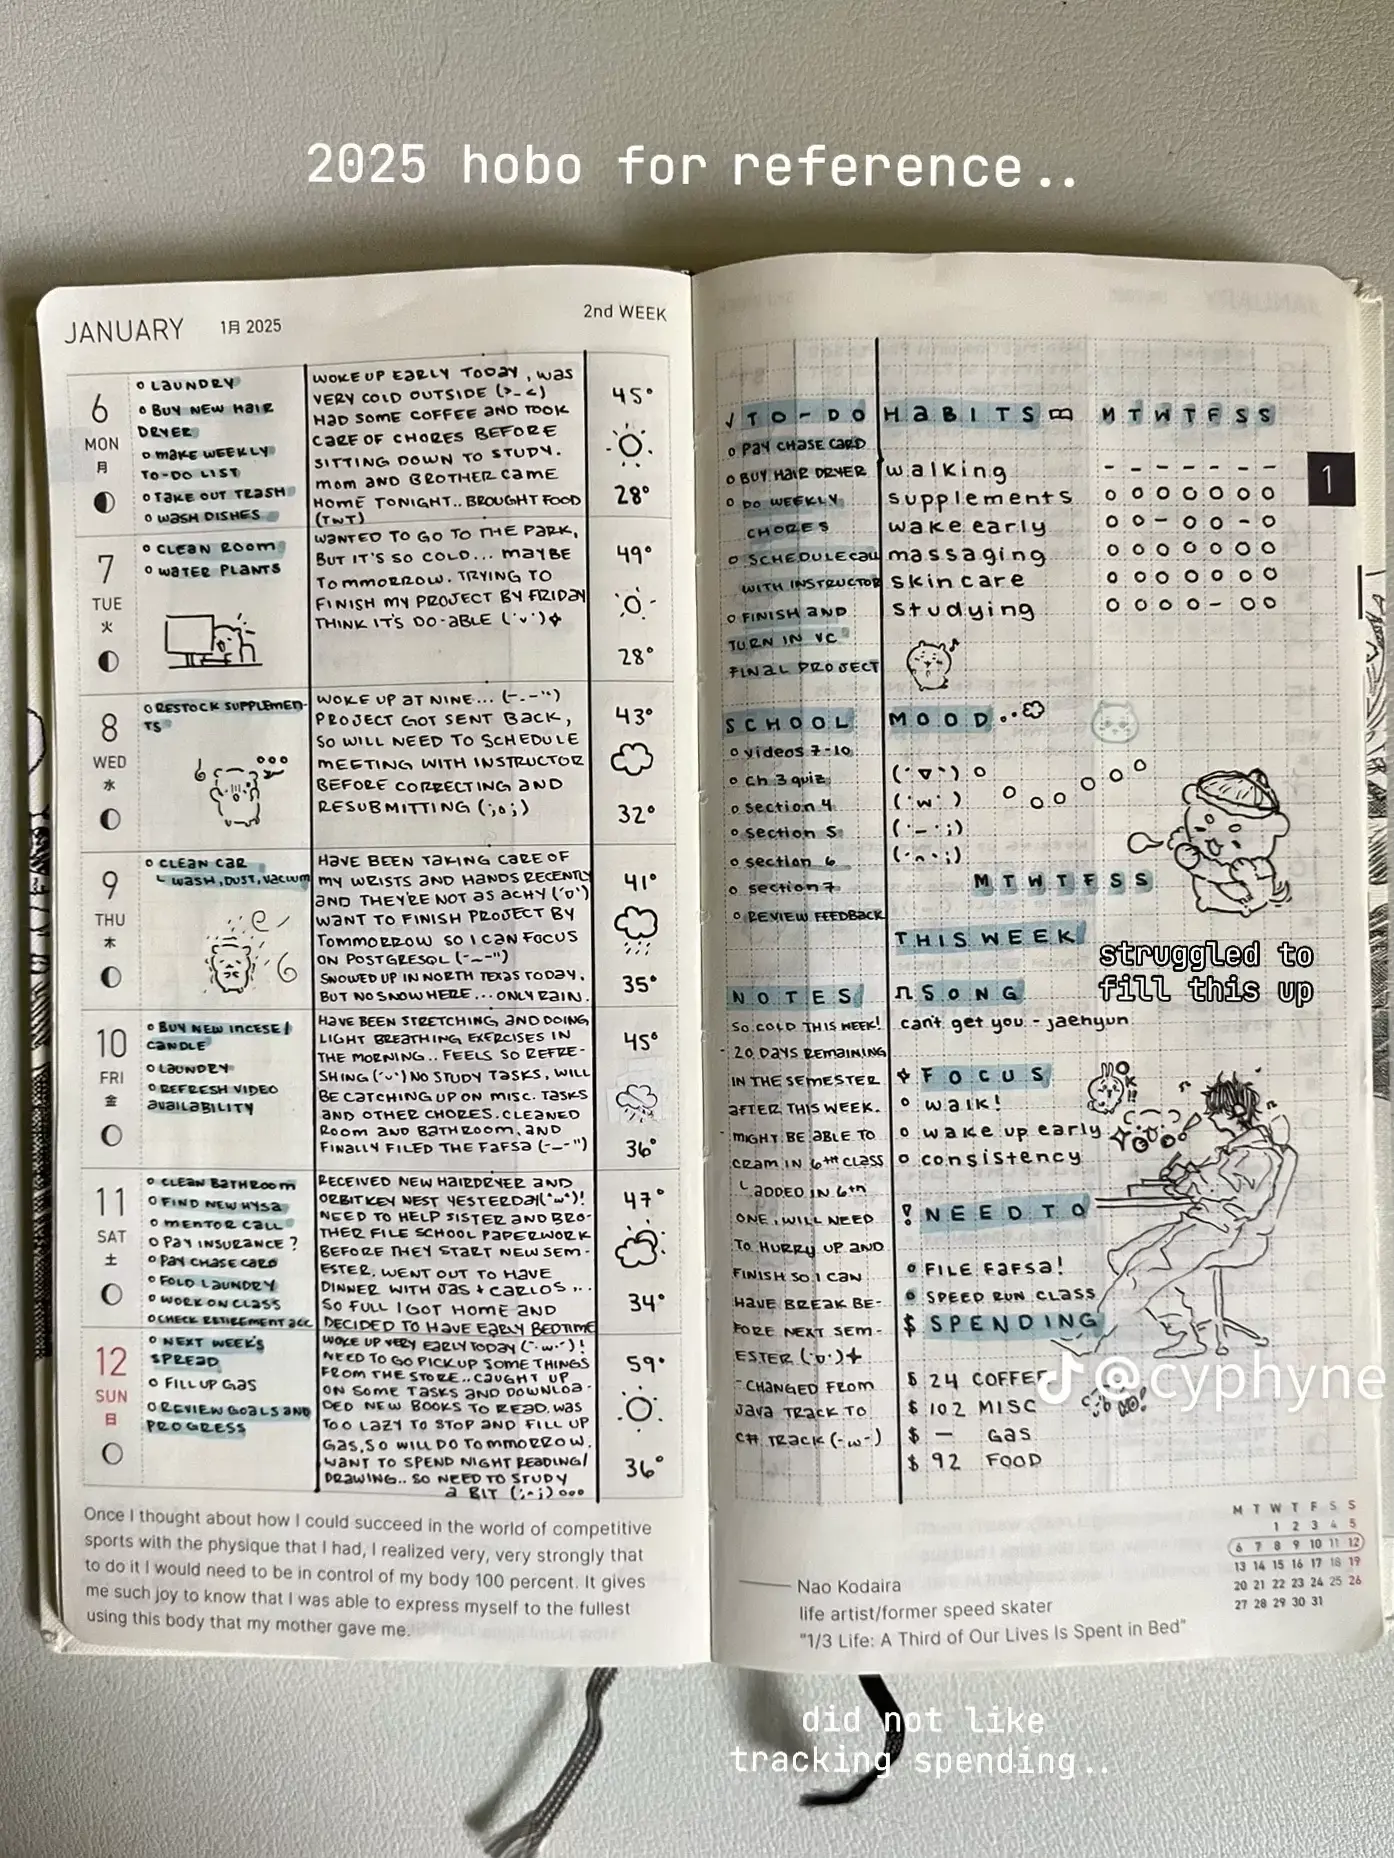 2025 hobo for reference..
JANUARY 1月 2025
2nd WEEK
6
MON
月
o LAUNDRY
o BUY NEW HAIR
DRYER
o MAKE WEEKLY
TO-DO LIST
o TAKE OUT TRASH
o WASH DISHES
WOKE UP EARLY TODAY, WAS
VERY COLD OUTSIDE (>_<)
HAD SOME COFFEE AND TOOK
CARE OF CHORES BEFORE
SITTING DOWN TO STUDY.
MOM AND BROTHER CAME
HOME TONIGHT.. BROUGHT FOOD
(TNT)
45°
28°
7
TUE
火
o CLEAN ROOM
o WATER PLANTS
WANTED TO GO TO THE PARK,
BUT IT'S SO COLD... MAYBE
TOMMORROW. TRYING TO
FINISH MY PROJECT BY FRIDAY
THINK IT'S DO-ABLE ('v')✧
49°
28°
8
WED
水
o RESTOCK SUPPLEMEN-
TS
WOKE UP AT NINE... (-.-")
PROJECT GOT SENT BACK,
SO WILL NEED TO SCHEDULE
MEETING WITH INSTRUCTOR
BEFORE CORRECTING AND
RESUBMITTING (;o;)
43°
32°
9
THU
木
o CLEAN CAR
└ WASH, DUST, VACUUM
HAVE BEEN TAKING CARE OF
MY WRISTS AND HANDS RECENTLY
AND THEY'RE NOT AS ACHY ('o')
WANT TO FINISH PROJECT BY
TOMMORROW SO I CAN FOCUS
ON POSTGRESQL (-_-")
SNOWED UP IN NORTH TEXAS TODAY.
BUT NO SNOW HERE... ONLY RAIN.
41°
35°
10
FRI
金
o BUY NEW INCESE/
CANDLE
o LAUNDRY
o REFRESH VIDEO
AVAILABILITY
HAVE BEEN STRETCHING AND DOING
LIGHT BREATHING EXERCISES IN
THE MORNING.. FEELS SO REFRE-
SHING ('v') NO STUDY TASKS, WILL
BE CATCHING UP ON MISC. TASKS
AND OTHER CHORES. CLEANED
ROOM AND BATHROOM, AND
FINALLY FILED THE FAFSA (-_-")
45°
36°
11
SAT
土
o CLEAN BATHROOM
o FIND NEW HYSA
o MENTOR CALL
o PAY INSURANCE?
o PAY CHASE CARD
o FOLD LAUNDRY
o WORK ON CLASS
o CHECK RETIREMENT ACC
RECEIVED NEW HAIRDRYER AND
ORBITKEY NEST YESTERDAY('w')!
NEED TO HELP SISTER AND BRO-
THER FILE SCHOOL PAPERWORK
BEFORE THEY START NEW SEM-
ESTER. WENT OUT TO HAVE
DINNER WITH JAS + CARLOS ...
SO FULL I GOT HOME AND
DECIDED TO HAVE EARLY BEDTIME
47°
34°
12
SUN
日
o NEXT WEEK'S
SPREAD
o FILL UP GAS
o REVIEW GOALS AND
PROGRESS
WOKE UP VERY EARLY TODAY ('w')!
NEED TO GO PICK UP SOME THINGS
FROM THE STORE.. CAUGHT UP
ON SOME TASKS AND DOWNLOA-
DED NEW BOOKS TO READ. WAS
TOO LAZY TO STOP AND FILL UP
GAS, SO WILL DO TOMMORROW.
WANT TO SPEND NIGHT READING/
DRAWING.. SO NEED TO STUDY
A BIT (;-;) ooo
59°
36°
Once I thought about how I could succeed in the world of competitive
sports with the physique that I had, I realized very, very strongly that
to do it I would need to be in control of my body 100 percent. It gives
me such joy to know that I was able to express myself to the fullest
using this body that my mother gave me.
✓ TO-DO
o PAY CHASE CARD
o BUY HAIR DRYER
o DO WEEKLY
CHORES
o SCHEDULE CALL
WITH INSTRUCTOR
o FINISH AND
TURN IN VC
FINAL PROJECT
HABITS M T W T F S S
walking - - - - - - -
supplements o o o o o o o
wake early o o - o o - o
massaging o o o o o o o
skincare o o o o o o o
studying o o o o - o o
1
SCHOOL
o videos 7-10
o Ch 3 quiz
o section 4
o section 5
o section 6
o section 7
o REVIEW FEEDBACK
MOOD..
('▽')
('w')
('-';)
('^';)
M T W T F S S
THIS WEEK
struggled to
fill this up
NOTES
SO COLD THIS WEEK!
- 20 DAYS REMAINING
IN THE SEMESTER
AFTER THIS WEEK.
- MIGHT BE ABLE TO
CRAM IN 6TH CLASS
└ ADDED IN 6TH
ONE, WILL NEED
TO HURRY UP AND
FINISH SO I CAN
HAVE BREAK BE-
FORE NEXT SEM-
ESTER ('o')✧
- CHANGED FROM
JAVA TRACK TO
C# TRACK (-w-)
SONG
can't get you - jaehyun
✧ FOCUS
o walk!
o wake up early
o consistency
OK!!
! NEED TO
o FILE FAFSA!
o SPEED RUN CLASS
$ SPENDING
$ 24 COFFEE
$ 102 MISC
$ — GAS
$ 92 FOOD
@cyphyne
Nao Kodaira
life artist/former speed skater
"1/3 Life: A Third of Our Lives Is Spent in Bed"
M T W T F S S
1 2 3 4 5
6 7 8 9 10 11 12
13 14 15 16 17 18 19
20 21 22 23 24 25 26
27 28 29 30 31
did not like
tracking spending..